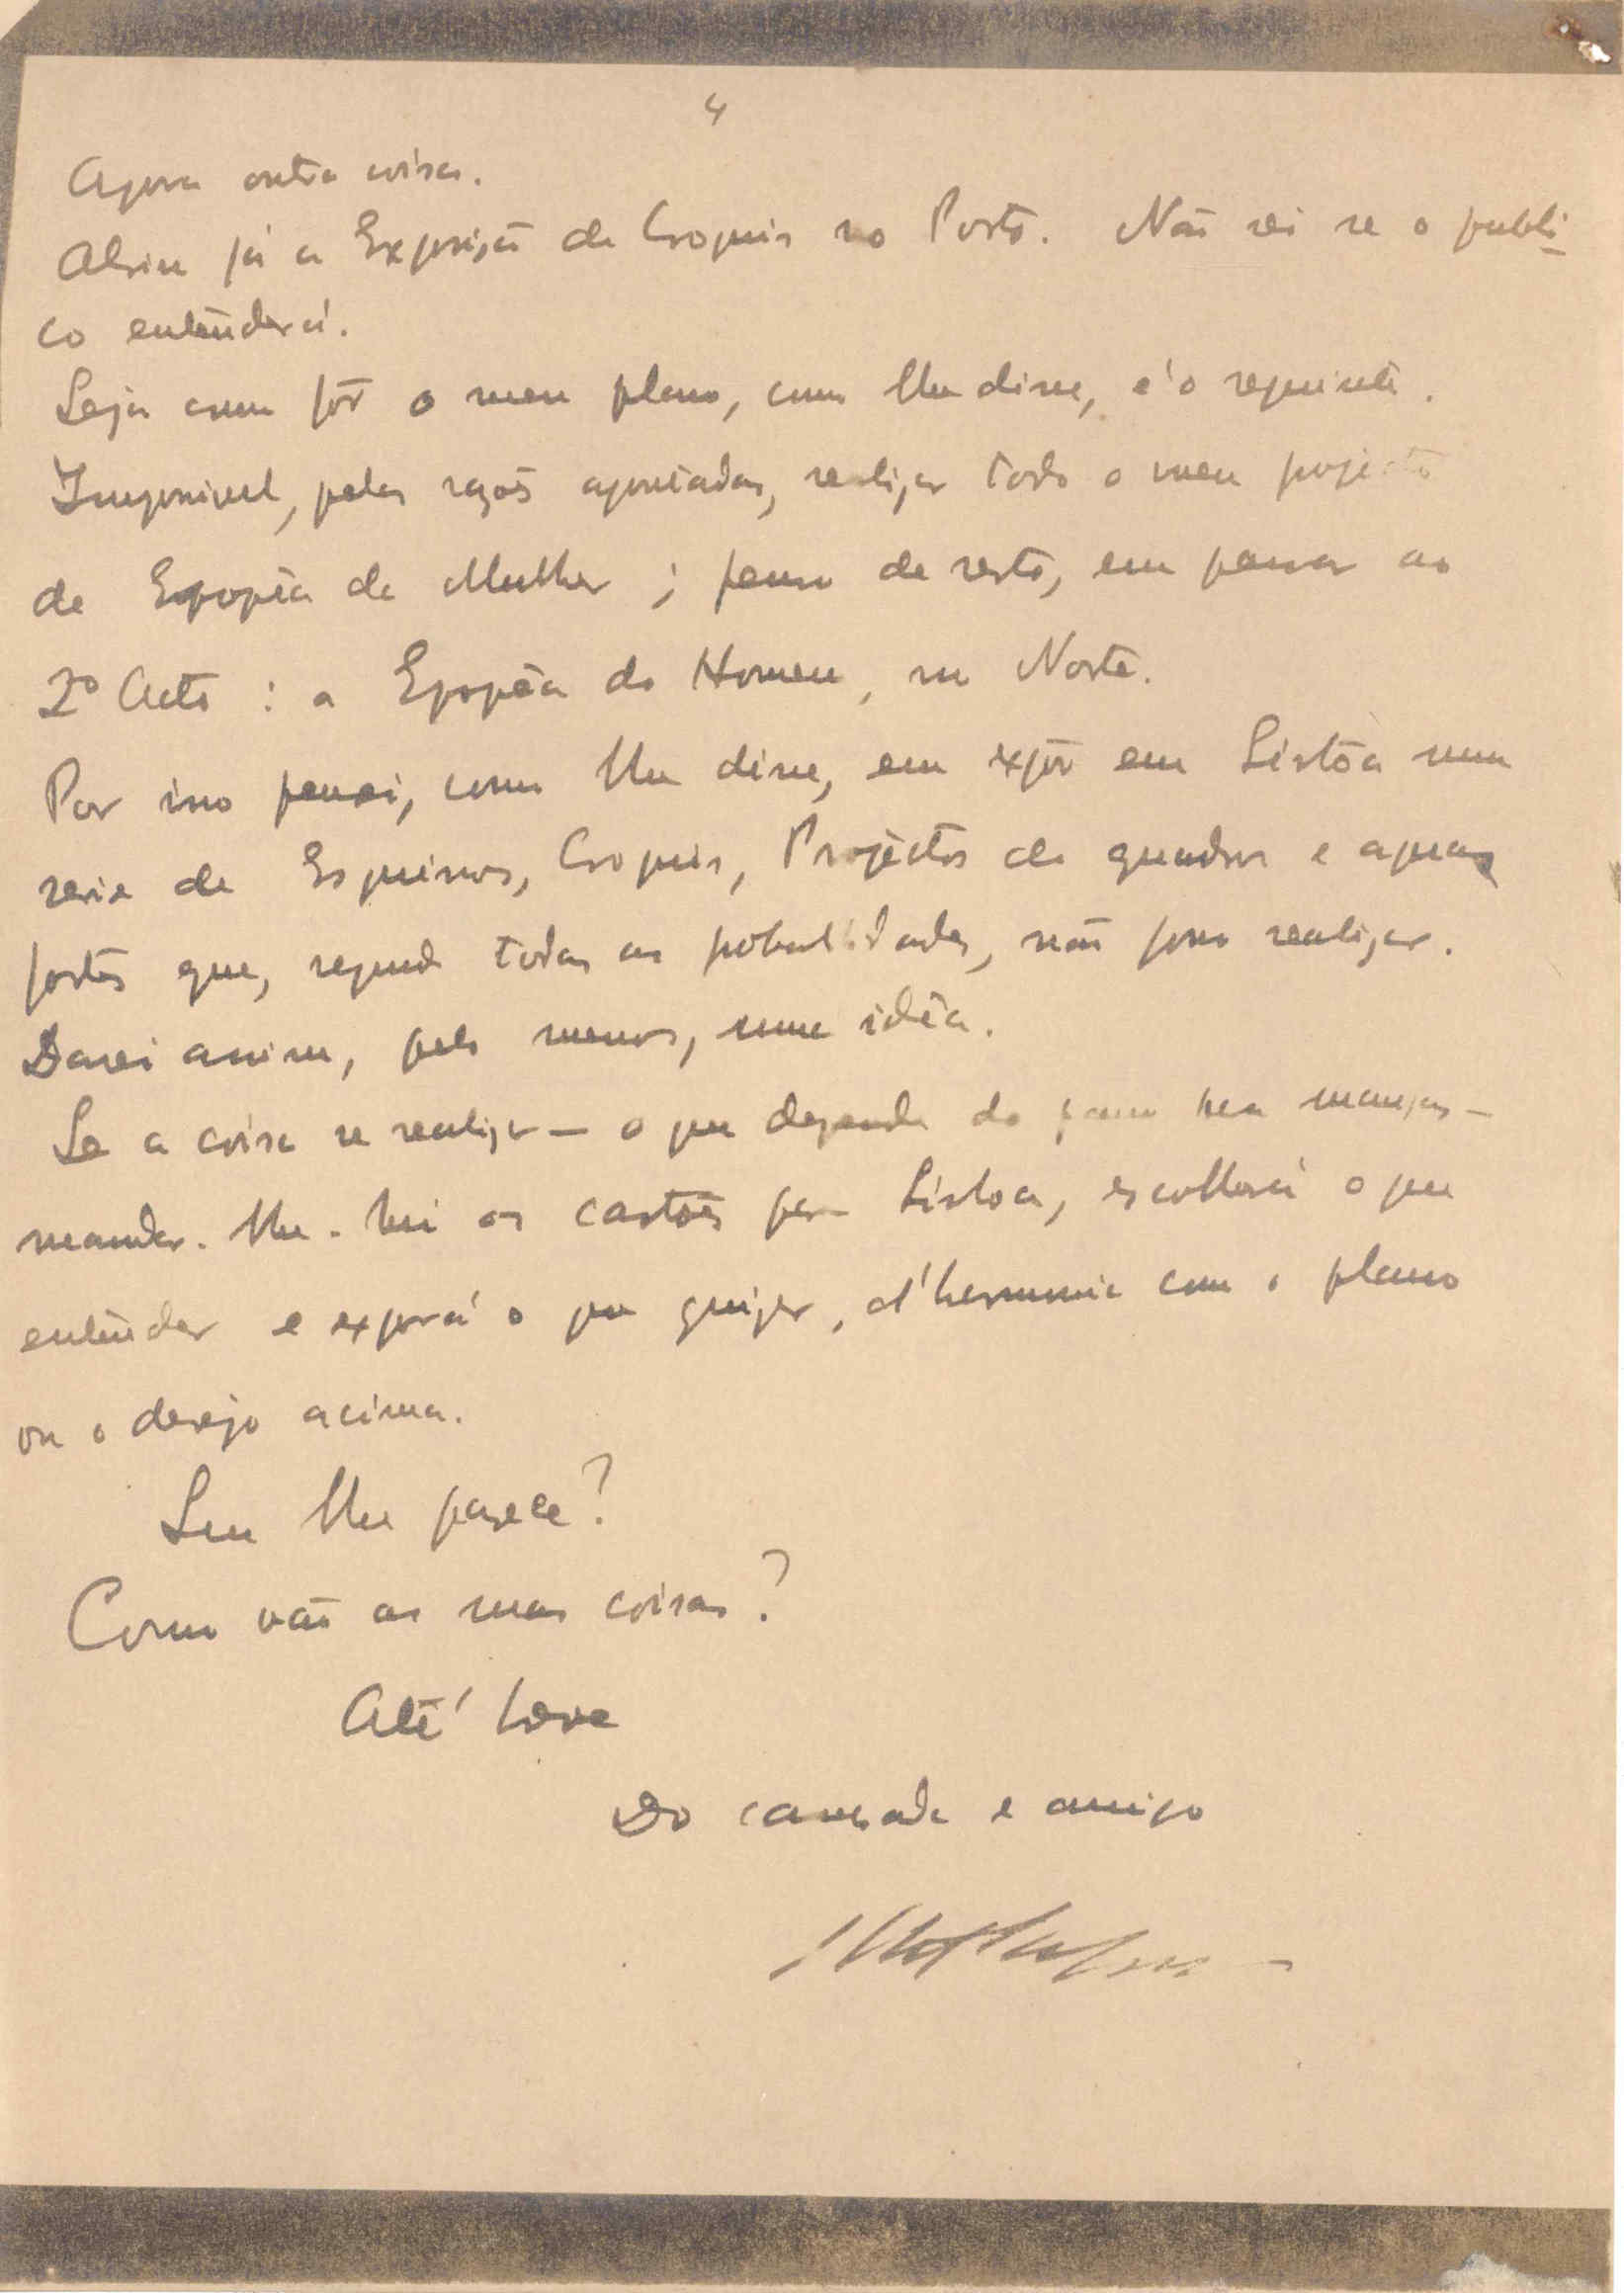 4
Agora outra coisa.
Abriu já a Exposição de Croquis no Porto. Não sei se o publi-
co entenderá.
Seja como fôr o meu plano, como lhe disse, é o seguinte.
Impossivel, pelas razões apontadas, realizar todo o meu projecto
de Epopêa da Mulher; penso de resto, em passar ao
2º Acto: a Epopêa do Homem, no Norte.
Por isso pensei, como lhe disse, em expôr em Lisbôa uma
serie de Esquissos, Croquis, Projéctos de quadros e aguas
fortes que, segundo todas as probalidades, não posso realizar.
Darei assim, pelo menos, uma idêa.
Se a coisa se realizar — o que depende do
mandar-lhe-hei os cartões para Lisboa, escolherá o que
entender e exporá o que quizer, d'harmonia com o plano
ou o desejo acima.
lhe parece?
Como vão as suas coisas?
Até breve
Do camarada e amigo